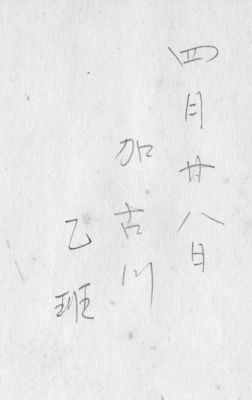 四月廿八日
加古川
乙班